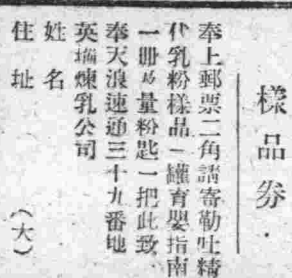 樣品券.
奉上郵票二角請寄勒吐精
代乳粉樣品一罐育嬰指南
一册及量粉匙一把此致
奉天浪速通三十九番地
英瑞煉乳公司
姓名
住址
(大)